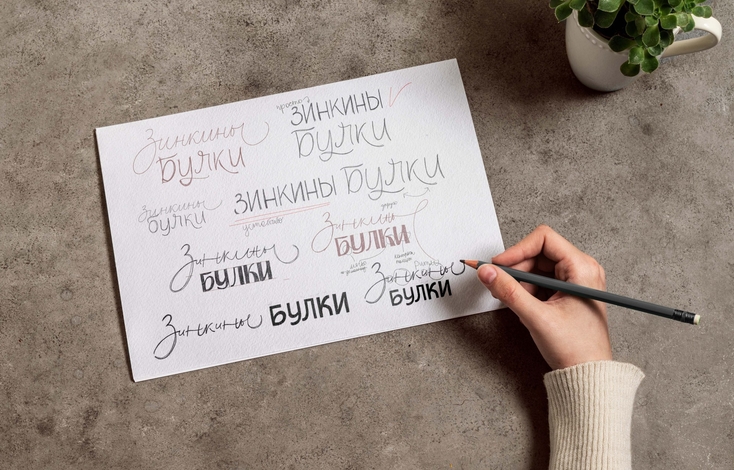 Зинкины
БУЛКИ
просто
ЗИНКИНЫ
БУЛКИ
Зинкины
БУЛКИ
ЗИНКИНЫ БУЛКИ
Зинкины
БУЛКИ
Зинкины
БУЛКИ
Зинкины
БУЛКИ
Зинкины БУЛКИ